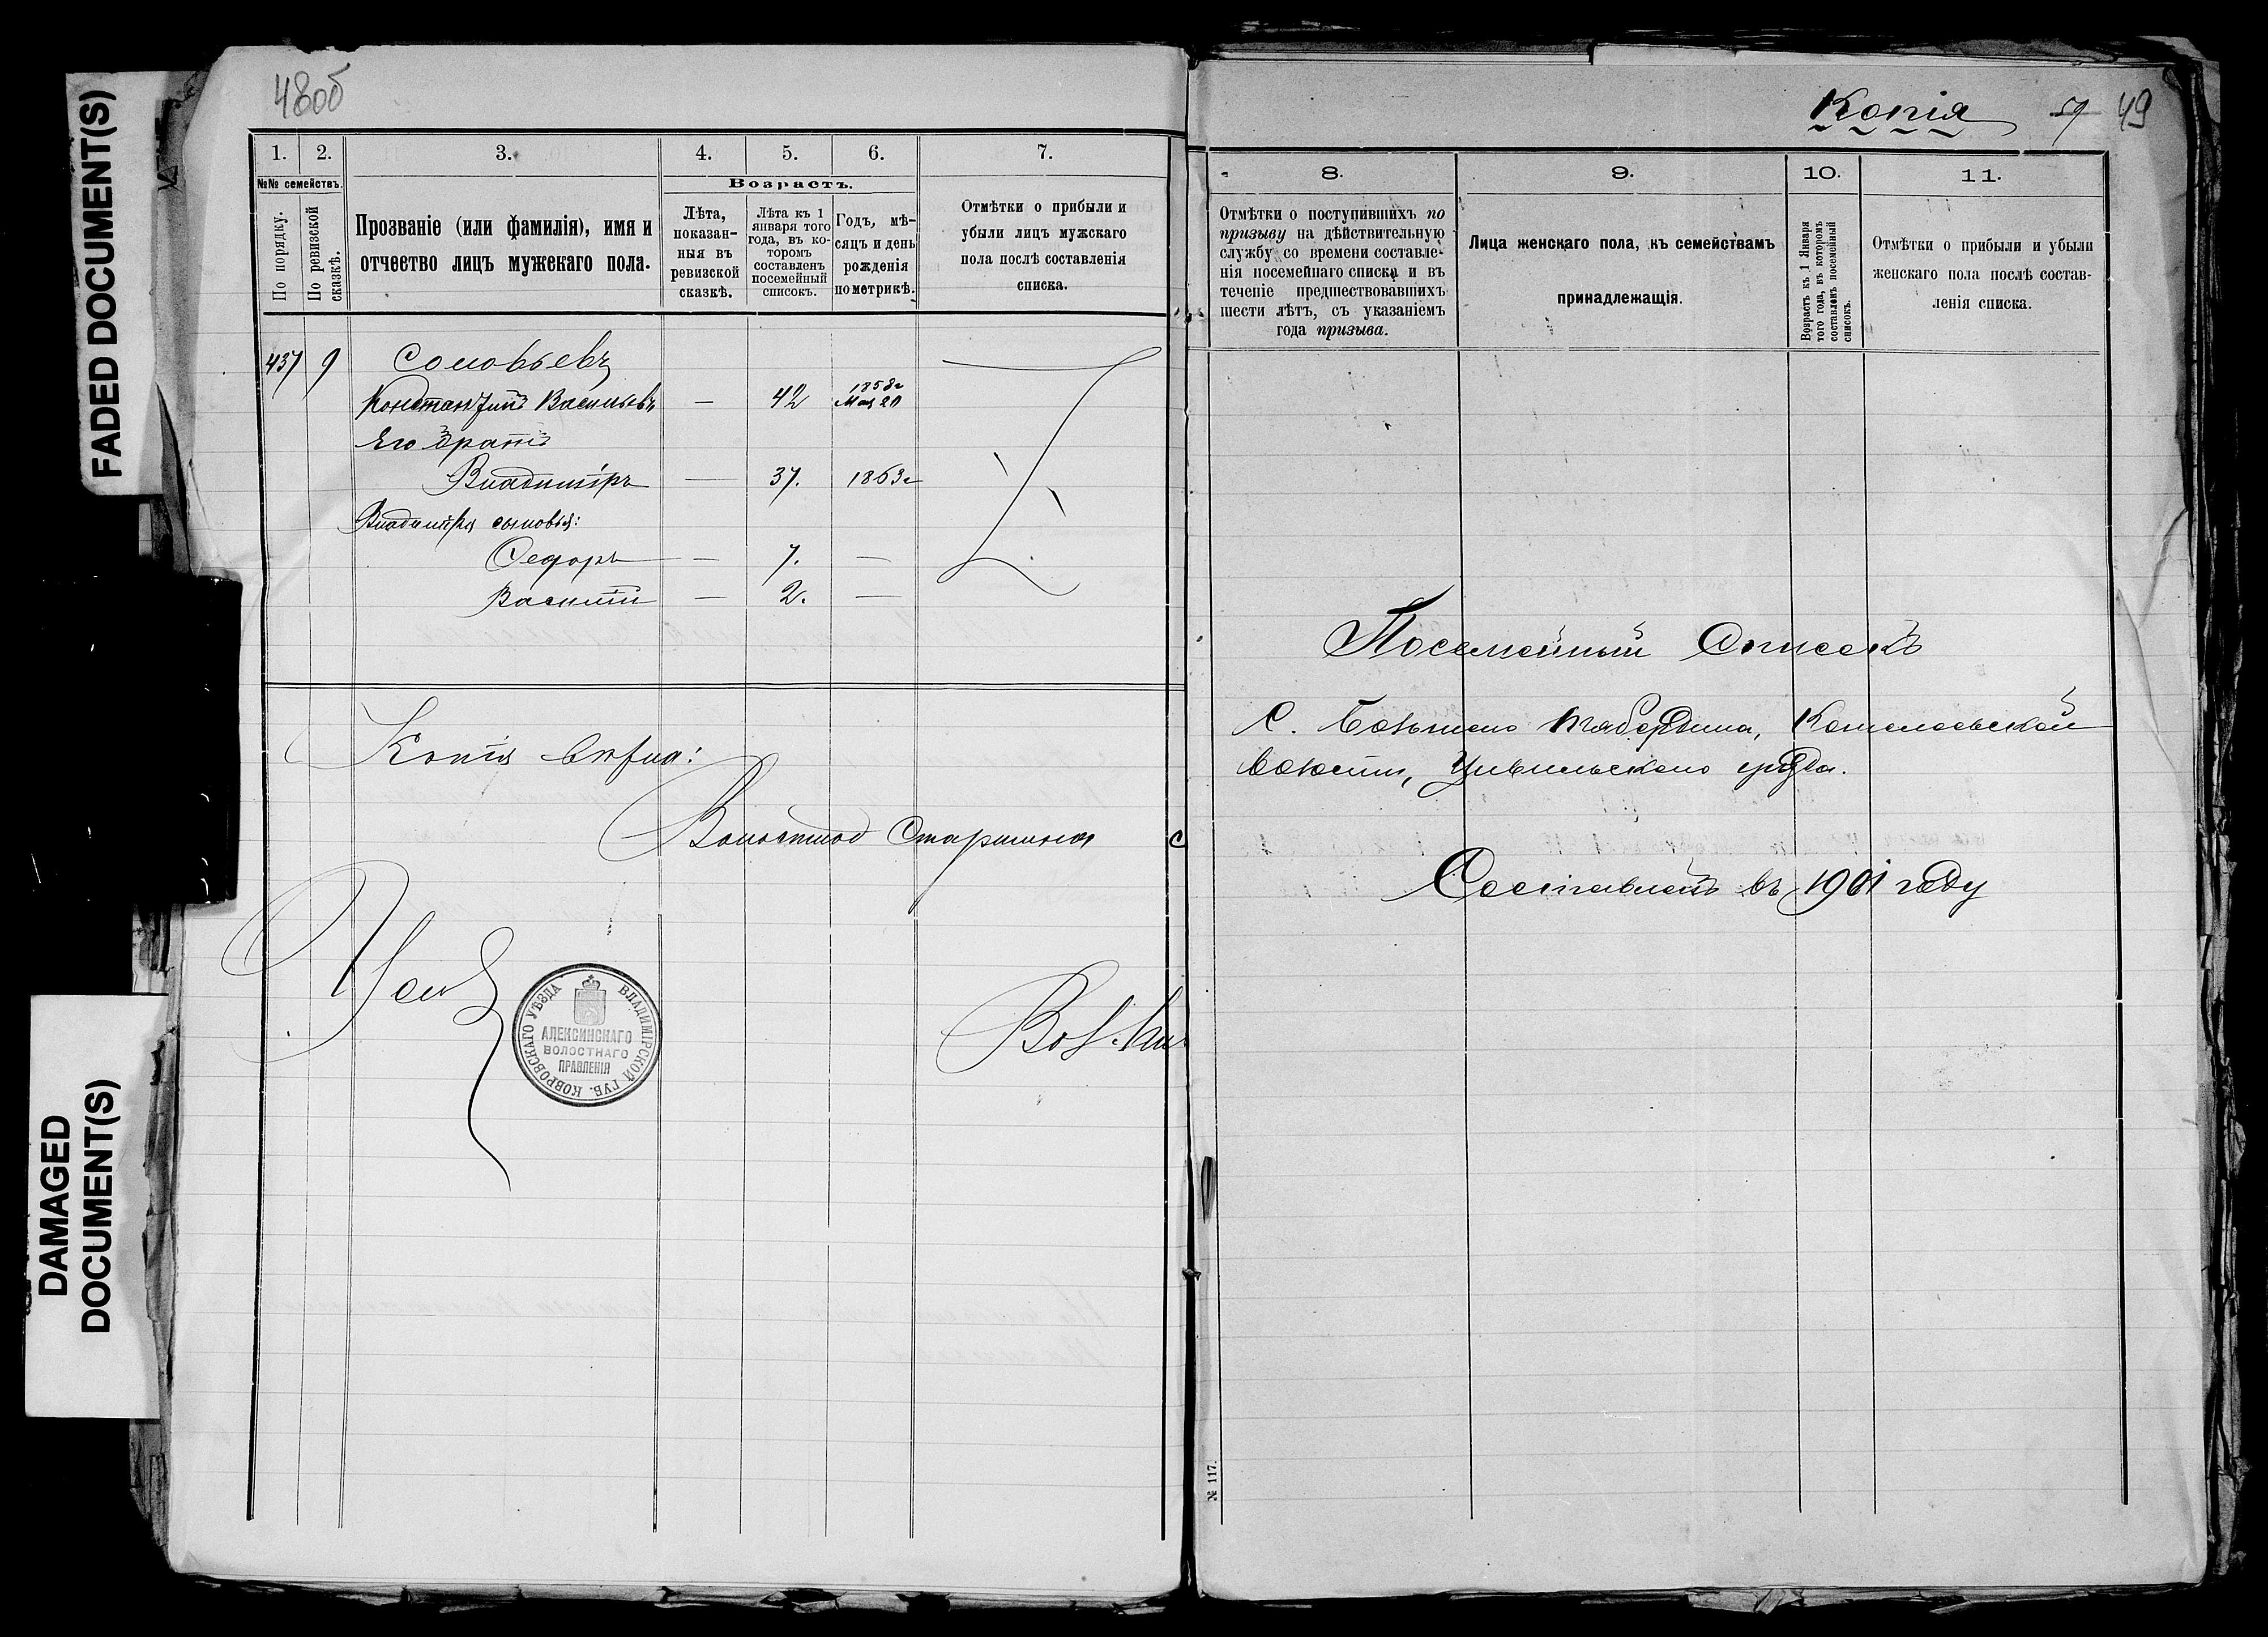 FADED DOCUMENT(S)
DAMAGED
DOCUMENT(S)
48об
1. 2. 3. 4. 5. 6. 7.
№№ семействъ.
По порядку.
По ревизской
сказкѣ.
Прозваніе (или фамилія), имя и
отчество лицъ мужскаго пола.
Возрастъ.
Лѣта,
показан-
ныя въ
ревизской
сказкѣ.
Лѣта къ 1
января того
года, въ ко-
торомъ
составленъ
посемейный
списокъ.
Годъ, мѣ-
сяцъ и день
рожденія
по метрикѣ.
Отмѣтки о прибыли и
убыли лицъ мужскаго
пола послѣ составленія
списка.
437 9 Соловьевъ
Константинъ Васильевъ — 42 1858г Мая 20
Его братъ
Владиміръ — 37. 1863г
Владиміра сыновья:
Федоръ — 7. —
Василій — 2. —
Копія вѣрна:
Волостной Старшина
КОВРОВСКАГО УѢЗДА ВЛАДИМІРСКОЙ ГУБ.
АЛЕКСИНСКАГО
ВОЛОСТНАГО
ПРАВЛЕНІЯ
Копія 59 49
8. 9. 10. 11.
Отмѣтки о поступившихъ по
призыву на дѣйствительную
службу со времени составле-
нія посемейнаго списка и въ
теченіе предшествовавшихъ
шести лѣтъ, съ указаніемъ
года призыва.
Лица женскаго пола, къ семействамъ
принадлежащія.
Возрастъ къ 1 Января
того года, въ которомъ
составленъ посемейный
списокъ.
Отмѣтки о прибыли и убыли
женскаго пола послѣ состав-
ленія списка.
Посемейный Списокъ
С. Большого Тябердина, Кошелеевской
волости, Цивильскаго уѣзда.
Составленъ въ 1901 году
№ 117.